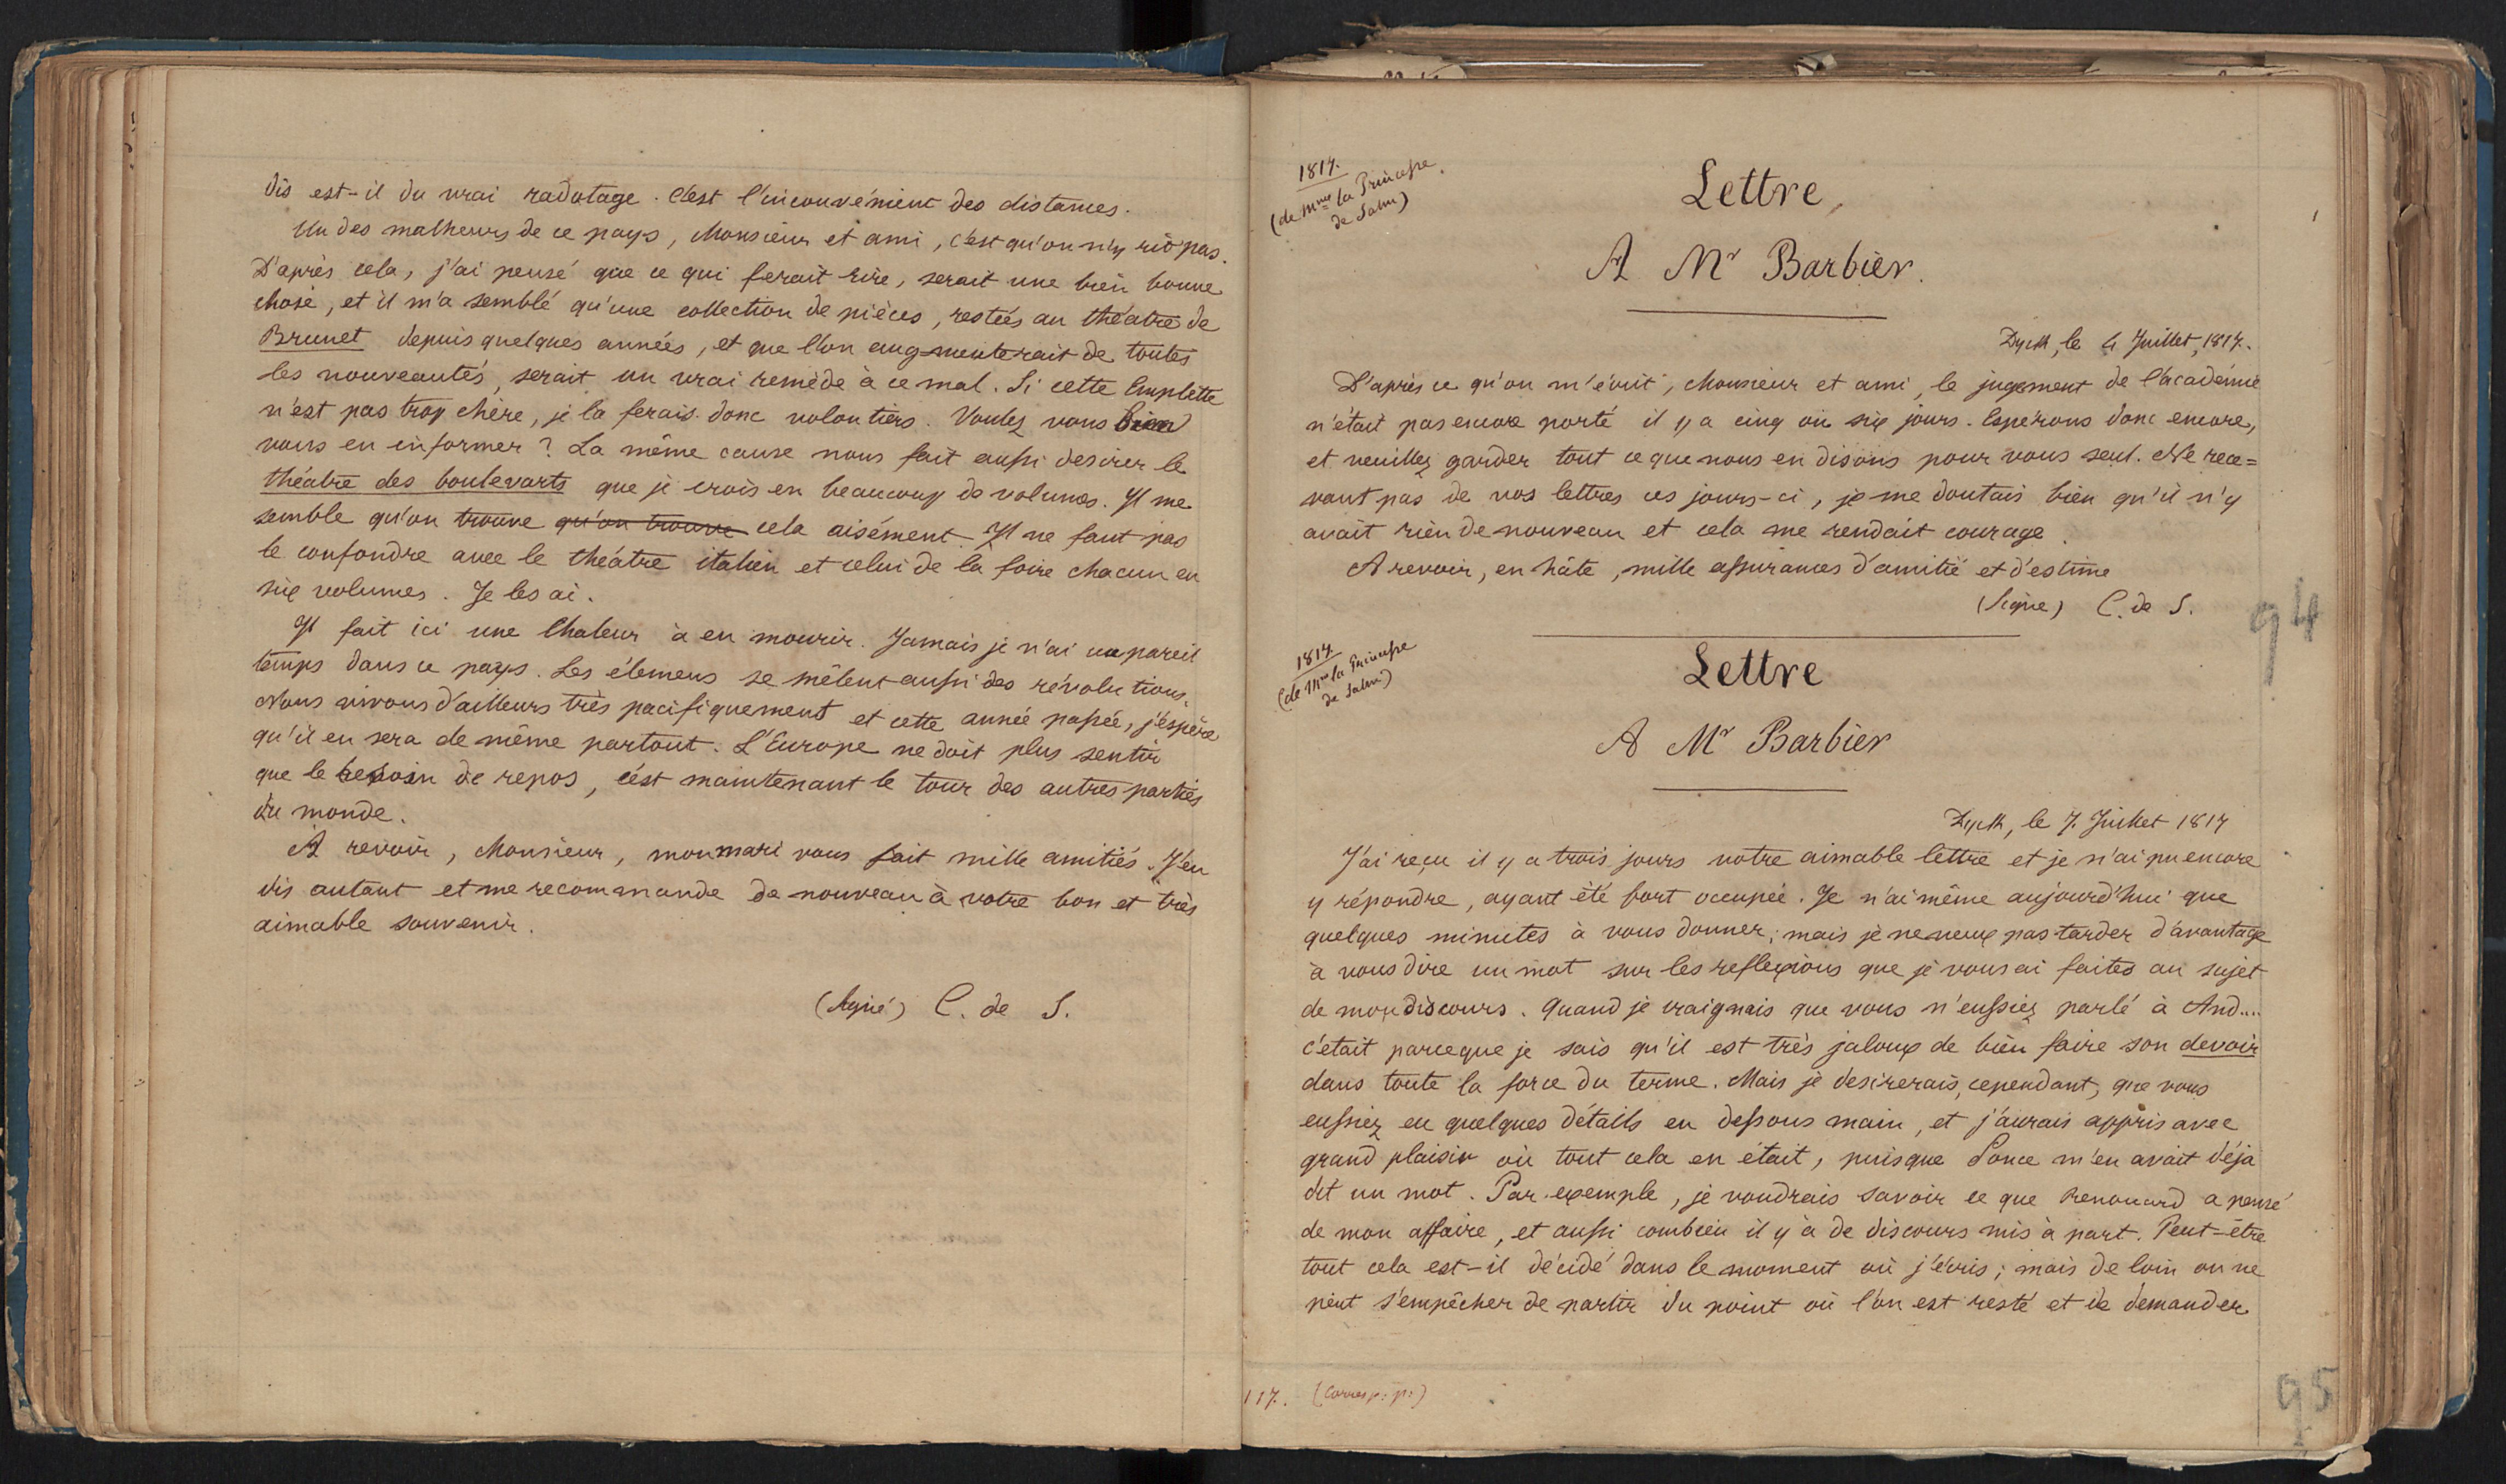 dis est-il du vrai radotage. C'est l'inconvénient des distances.
Un des malheurs de ce pays, Monsieur et ami, c'est qu'on n'y rit pas.
D'après cela, j'ai pensé que ce qui ferait rire, serait une bien bonne
chose, et il m'a semblé qu'une collection de pièces, restées au théatre de
Brunet depuis quelques années, et que l'on augmenterait de toutes
les nouveautés, serait un vrai remède à ce mal. Si cette Emplette
n'est pas trop chère, je la ferais donc volontiers. Voulez vous bien
vous en informer? La même cause nous fait aussi desirer le
théatre des boulevarts que je crois en beaucoup de volumes. Il me
semble qu'on trouve qu'on trouve cela aisément. Il ne faut pas
le confondre avec le théatre italien et celui de la foire chacun en
six volumes. Je les ai.
Il fait ici une Chaleur à en mourir. Jamais je n'ai vu pareil
temps dans ce pays. Les élemens se mêlent aussi des révolutions.
Nous vivons d'ailleurs très pacifiquement et cette année passée, j'éspère
qu'il en sera de même partout. L'Europe ne doit plus sentir
que le besoin de repos, c'est maintenant le tour des autres parties
du monde.
A revoir, Monsieur, mon mari vous fait mille amitiés. J'en
dis autant et me recommande de nouveau à votre bon et très
aimable souvenir.
(Signé) C. de S.
1817.
(de Mme la Princesse
de Salm)
Lettre
A Mr Barbier.
Dyck, le 4 Juillet, 1817.
D'après ce qu'on m'écrit, Monsieur et ami, le jugement de l'académie
n'était pas encore porté il y a cinq ou six jours. Espérons donc encore,
et veuillez garder tout ce que nous en disons pour vous seul. Ne rece=
vant pas de vos lettres ces jours-ci, je me doutais bien qu'il n'y
avait rien de nouveau et cela me rendait courage.
A revoir, en hâte, mille assurances d'amitié et d'estime
(Signé) C. de S.
94
1817.
(de Mme la Princesse
de Salm)
Lettre
A Mr Barbier
Dyck, le 7. Juillet 1817
J'ai reçu il y a trois jours votre aimable lettre et je n'ai pu encore
y répondre, ayant été fort occupée. Je n'ai même aujourd'hui que
quelques minutes à vous donner; mais je ne veux pas tarder d'avantage
à vous dire un mot sur les reflexions que je vous ai faites au sujet
de mon discours. Quand je craignais que vous n'eussiez parlé à And....
c'était parceque je sais qu'il est très jaloux de bien faire son devoir
dans toute la force du terme. Mais je desirerais, cependant, que vous
eussiez eu quelques détails en dessous main, et j'aurais appris avec
grand plaisir où tout cela en était, puisque Ponce m'en avait déjà
dit un mot. Par exemple, je voudrais savoir ce que Renouard a pensé
de mon affaire, et aussi combien il y a de discours mis à part. Peut-être
tout cela est-il décidé dans le moment où j'écris; mais de loin on ne
peut s'empêcher de partir du point où l'on est resté et de demander
117. (Corresp: p:)
95